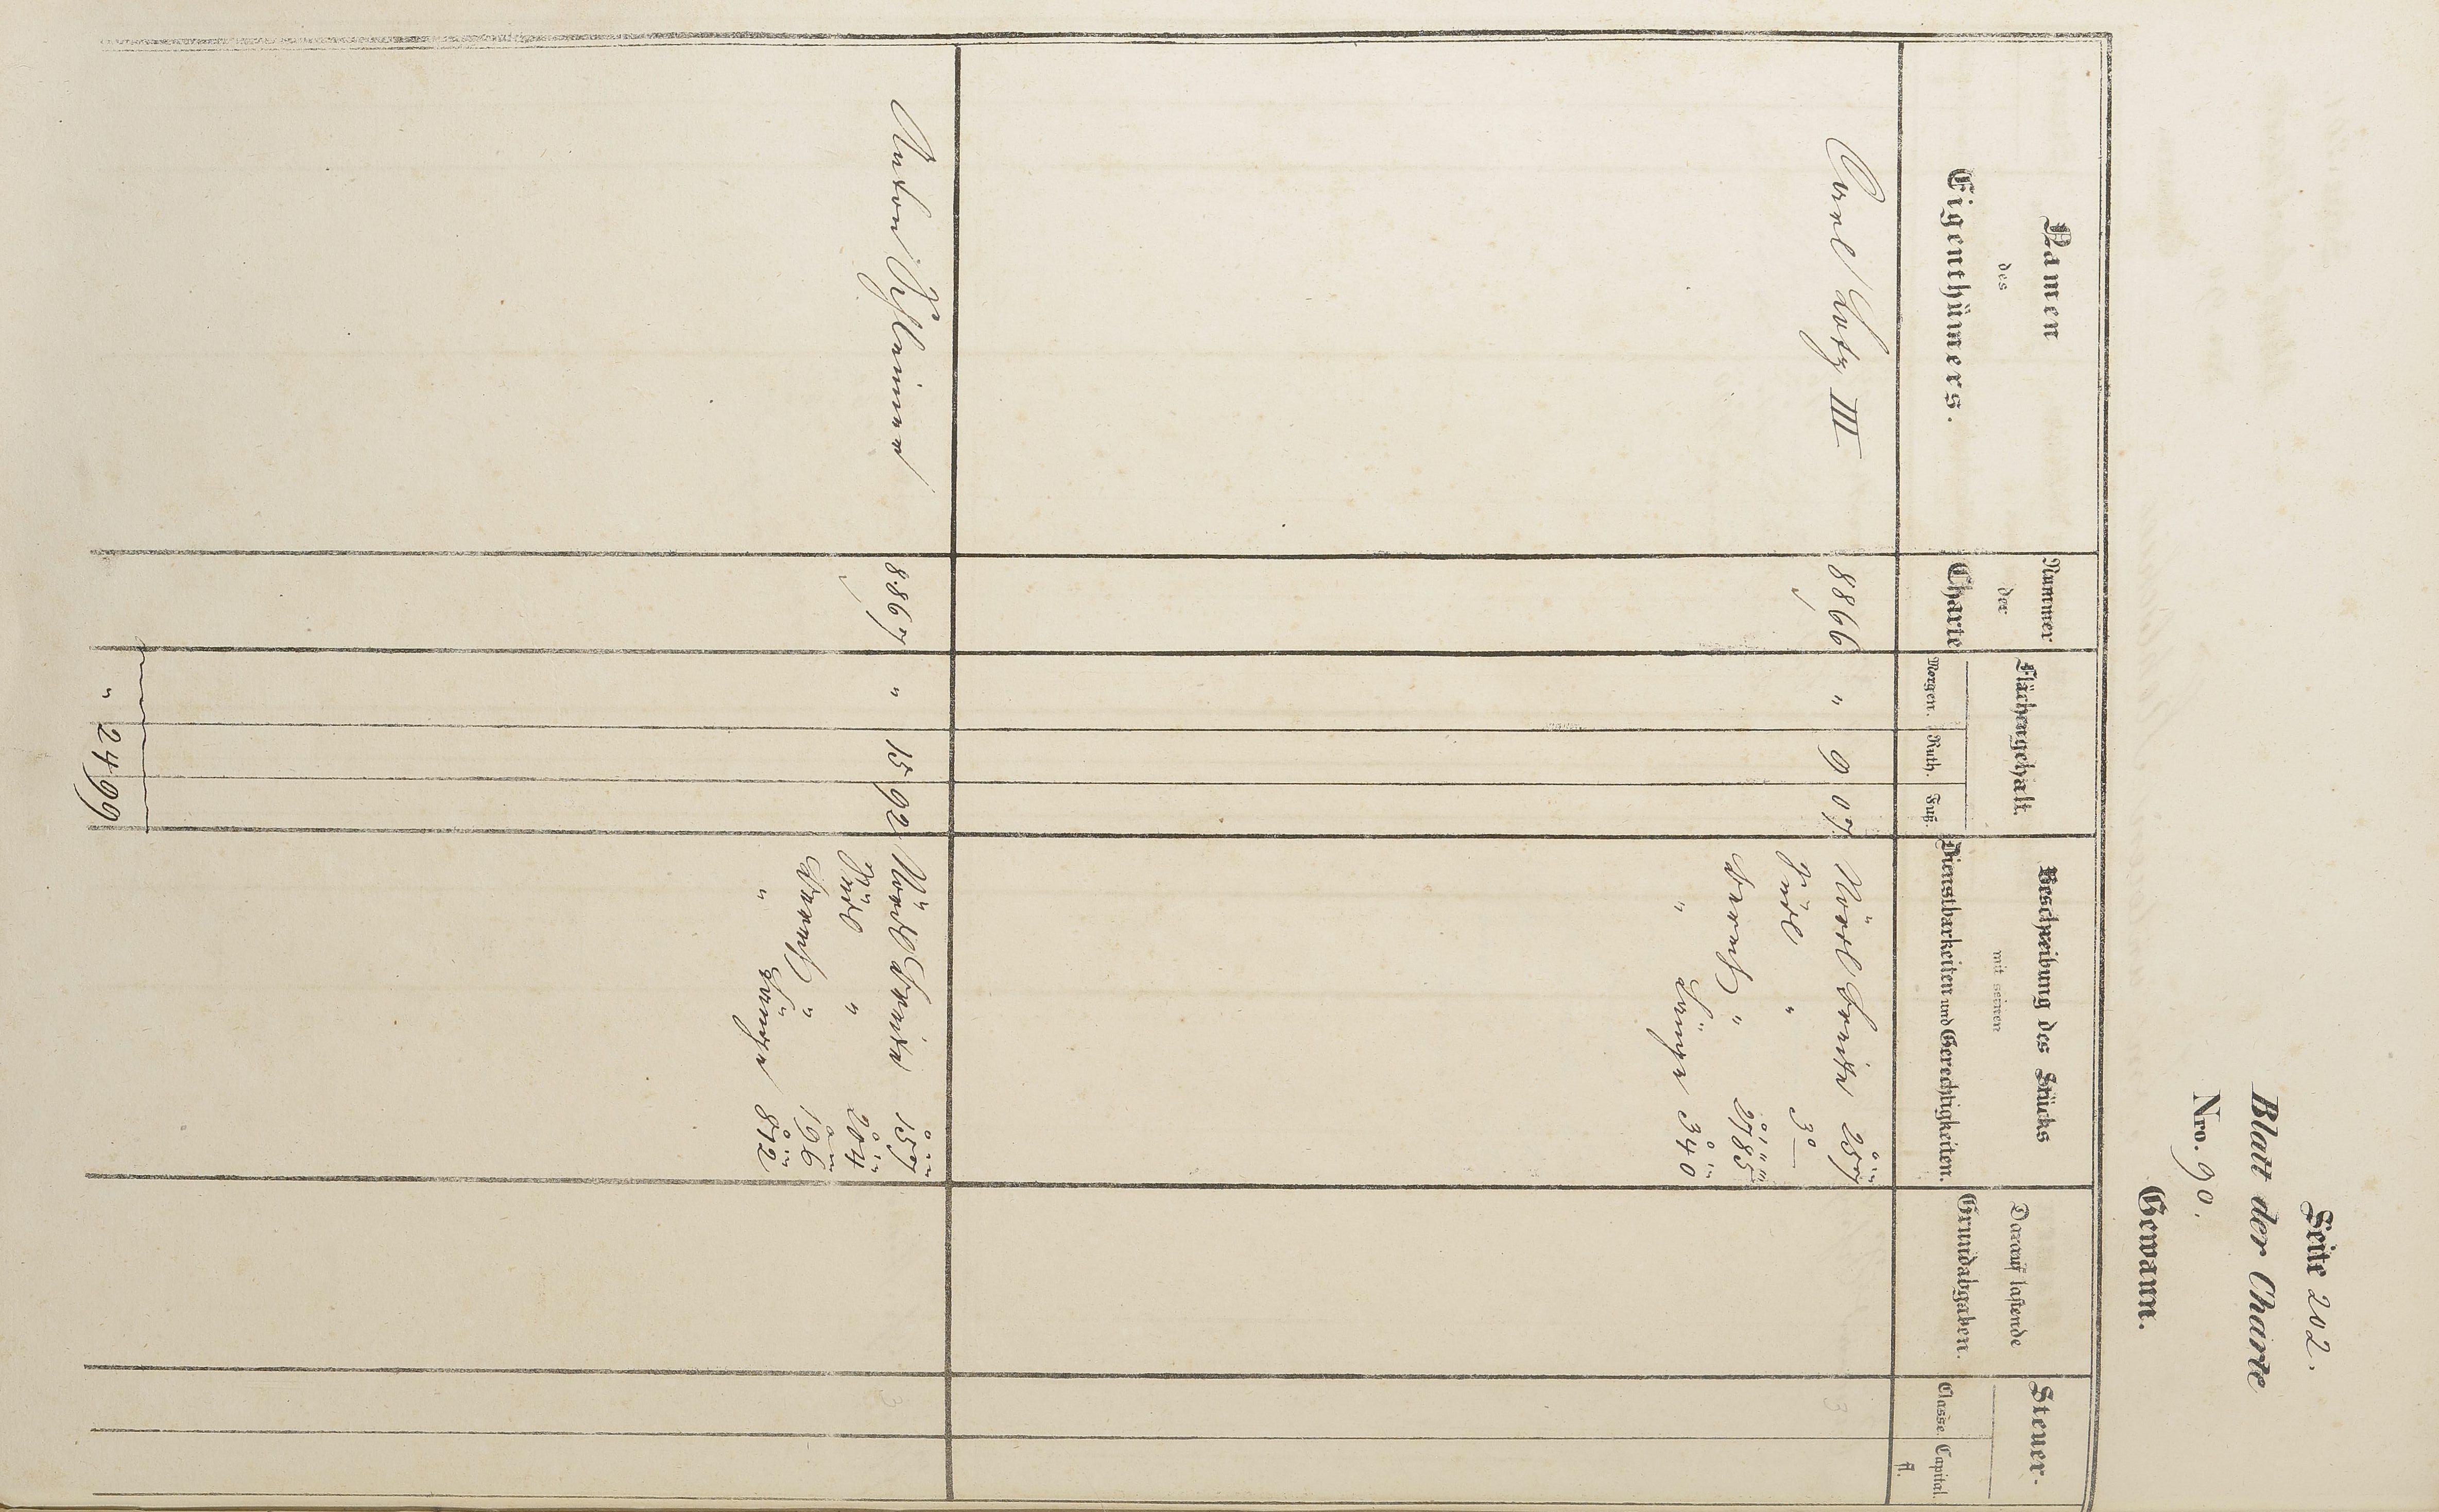 Seite 202.
Blatt der Charte
Nro. 90.
Gewann.
Namen
des
Eigenthümers.
Nummer
der
Charte
Flächengehalt.
Morgen. Ruth. Fuß.
Beschreibung des Stücks
mit seinen
Dienstbarkeiten und Gerechtigkeiten.
Darauf lastende
Grundabgaben.
Steuer-
Classe. Capital.
fl.
Carl Lotz III
8866 " 9 07 Nördl Breite 2° 5' 7"
Südl " 3° —
Durchs " 2° 7' 8" 5'''
" Länge 3° 4' 0"
Anton Schleimer
8867 " 15 92 Nördl Breite 1° 5' 7"
Südl " 2° 0' 4"
Durchs " 1° 9' 6"
" Länge 8° 1' 2"
" 24 99
3
3